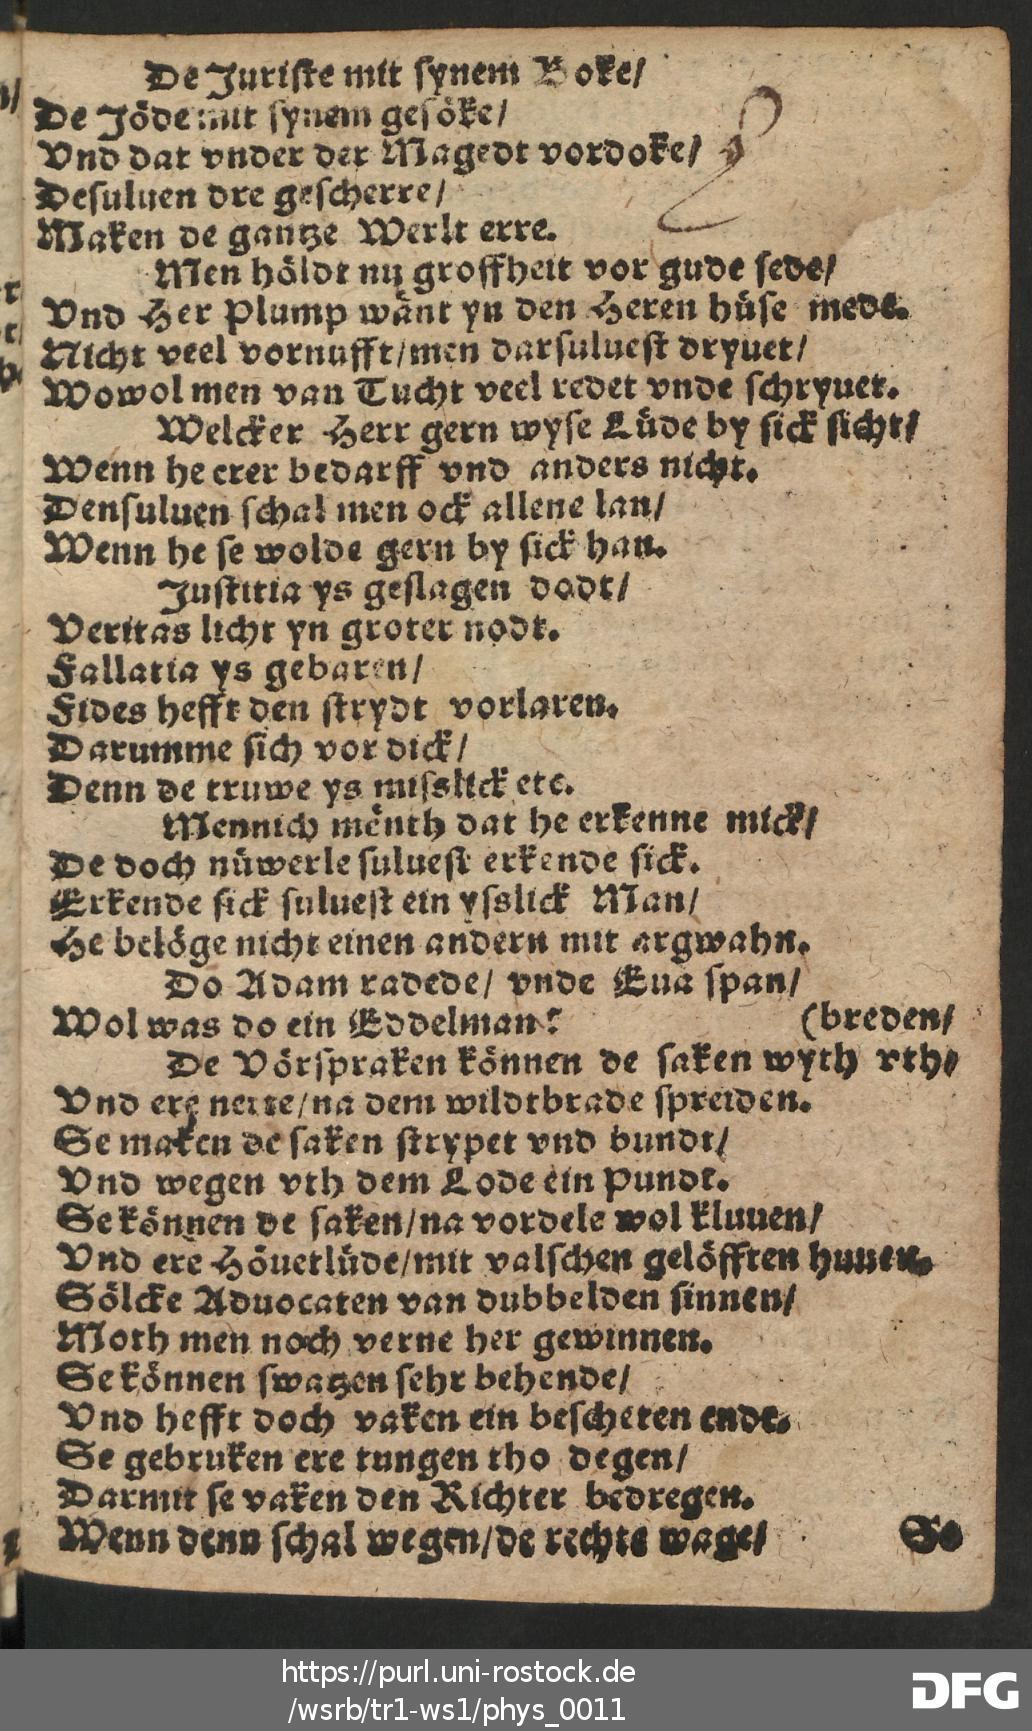 De Juriste mit synem Boke/
De Jöde mit synem gesöke/
Vnd dat vnder der Magedt vordoke/
Desuluen dre gescherre/
Maken de gantze Werlt erre.
Men höldt nu groffheit vor gude sede/
Vnd Her Plump wänt yn den Heren hüse mede.
Nicht veel vornufft/men darsuluest dryuet/
Wowol men van Tucht veel redet vnde schryuet.
Welcker Herr gern wyse Lüde by sick sicht/
Wenn he erer bedarff vnd anders nicht.
Densuluen schal men ock allene lan/
Wenn he se wolde gern by sick han.
Justitia ys geslagen dodt/
Veritas licht yn groter nodt.
Fallatia ys gebaren/
Fides hefft den strydt vorlaren.
Darumme sich vor dick/
Denn de truwe ys misslick etc.
Mennich mënth dat he erkenne mick/
De doch nüwerle suluest erkende sick.
Erkende sick suluest ein ysslick Man/
He belöge nicht einen andern mit argwahn.
Do Adam radede/ vnde Eua span/
Wol was do ein Eddelman?
(breden/
De Vörspraken können de saken wyth vth/
Vnd ere nette/na dem wildtbrade spreiden.
Se maken de saken strypet vnd bundt/
Vnd wegen vth dem Lode ein Pundt.
Se können de saken/na vordele wol kluuen/
Vnd ere Höuetlüde/mit valschen gelöfften huuen.
Sölcke Aduocaten van dubbelden sinnen/
Moth men noch verne her gewinnen.
Se können swatzen sehr behende/
Vnd hefft doch vaken ein bescheten ende.
Se gebruken ere tungen tho degen/
Darmit se vaken den Richter bedregen.
Wenn denn schal wegen/de rechte wage/
So
https://purl.uni-rostock.de
/wsrb/tr1-ws1/phys_0011
DFG